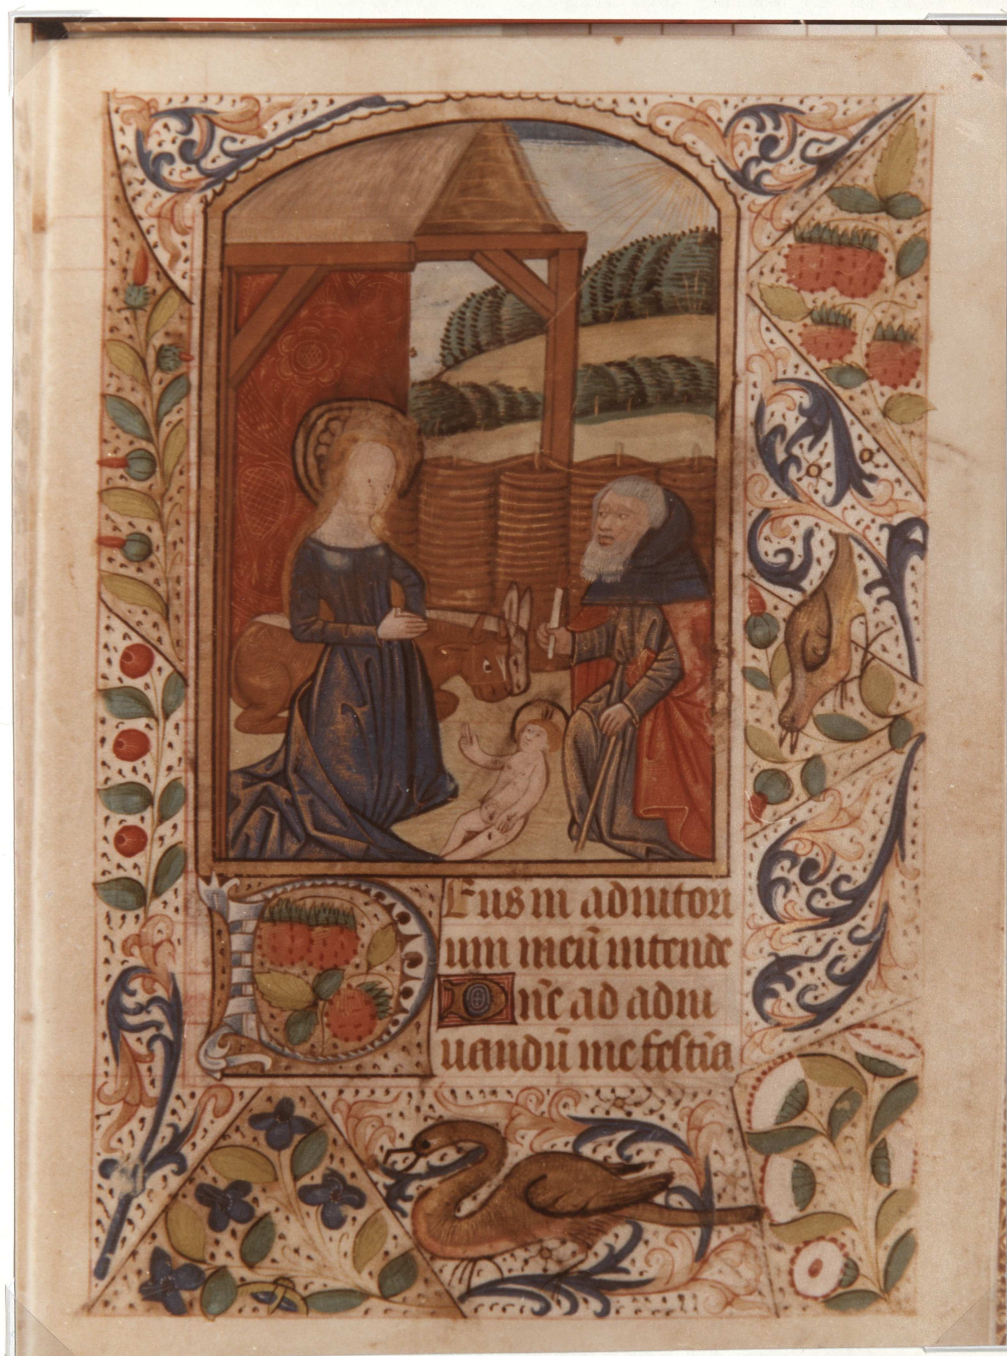 Deus in adiutori
um meū intende
Dn̄e ad adiu
uandū me festīa